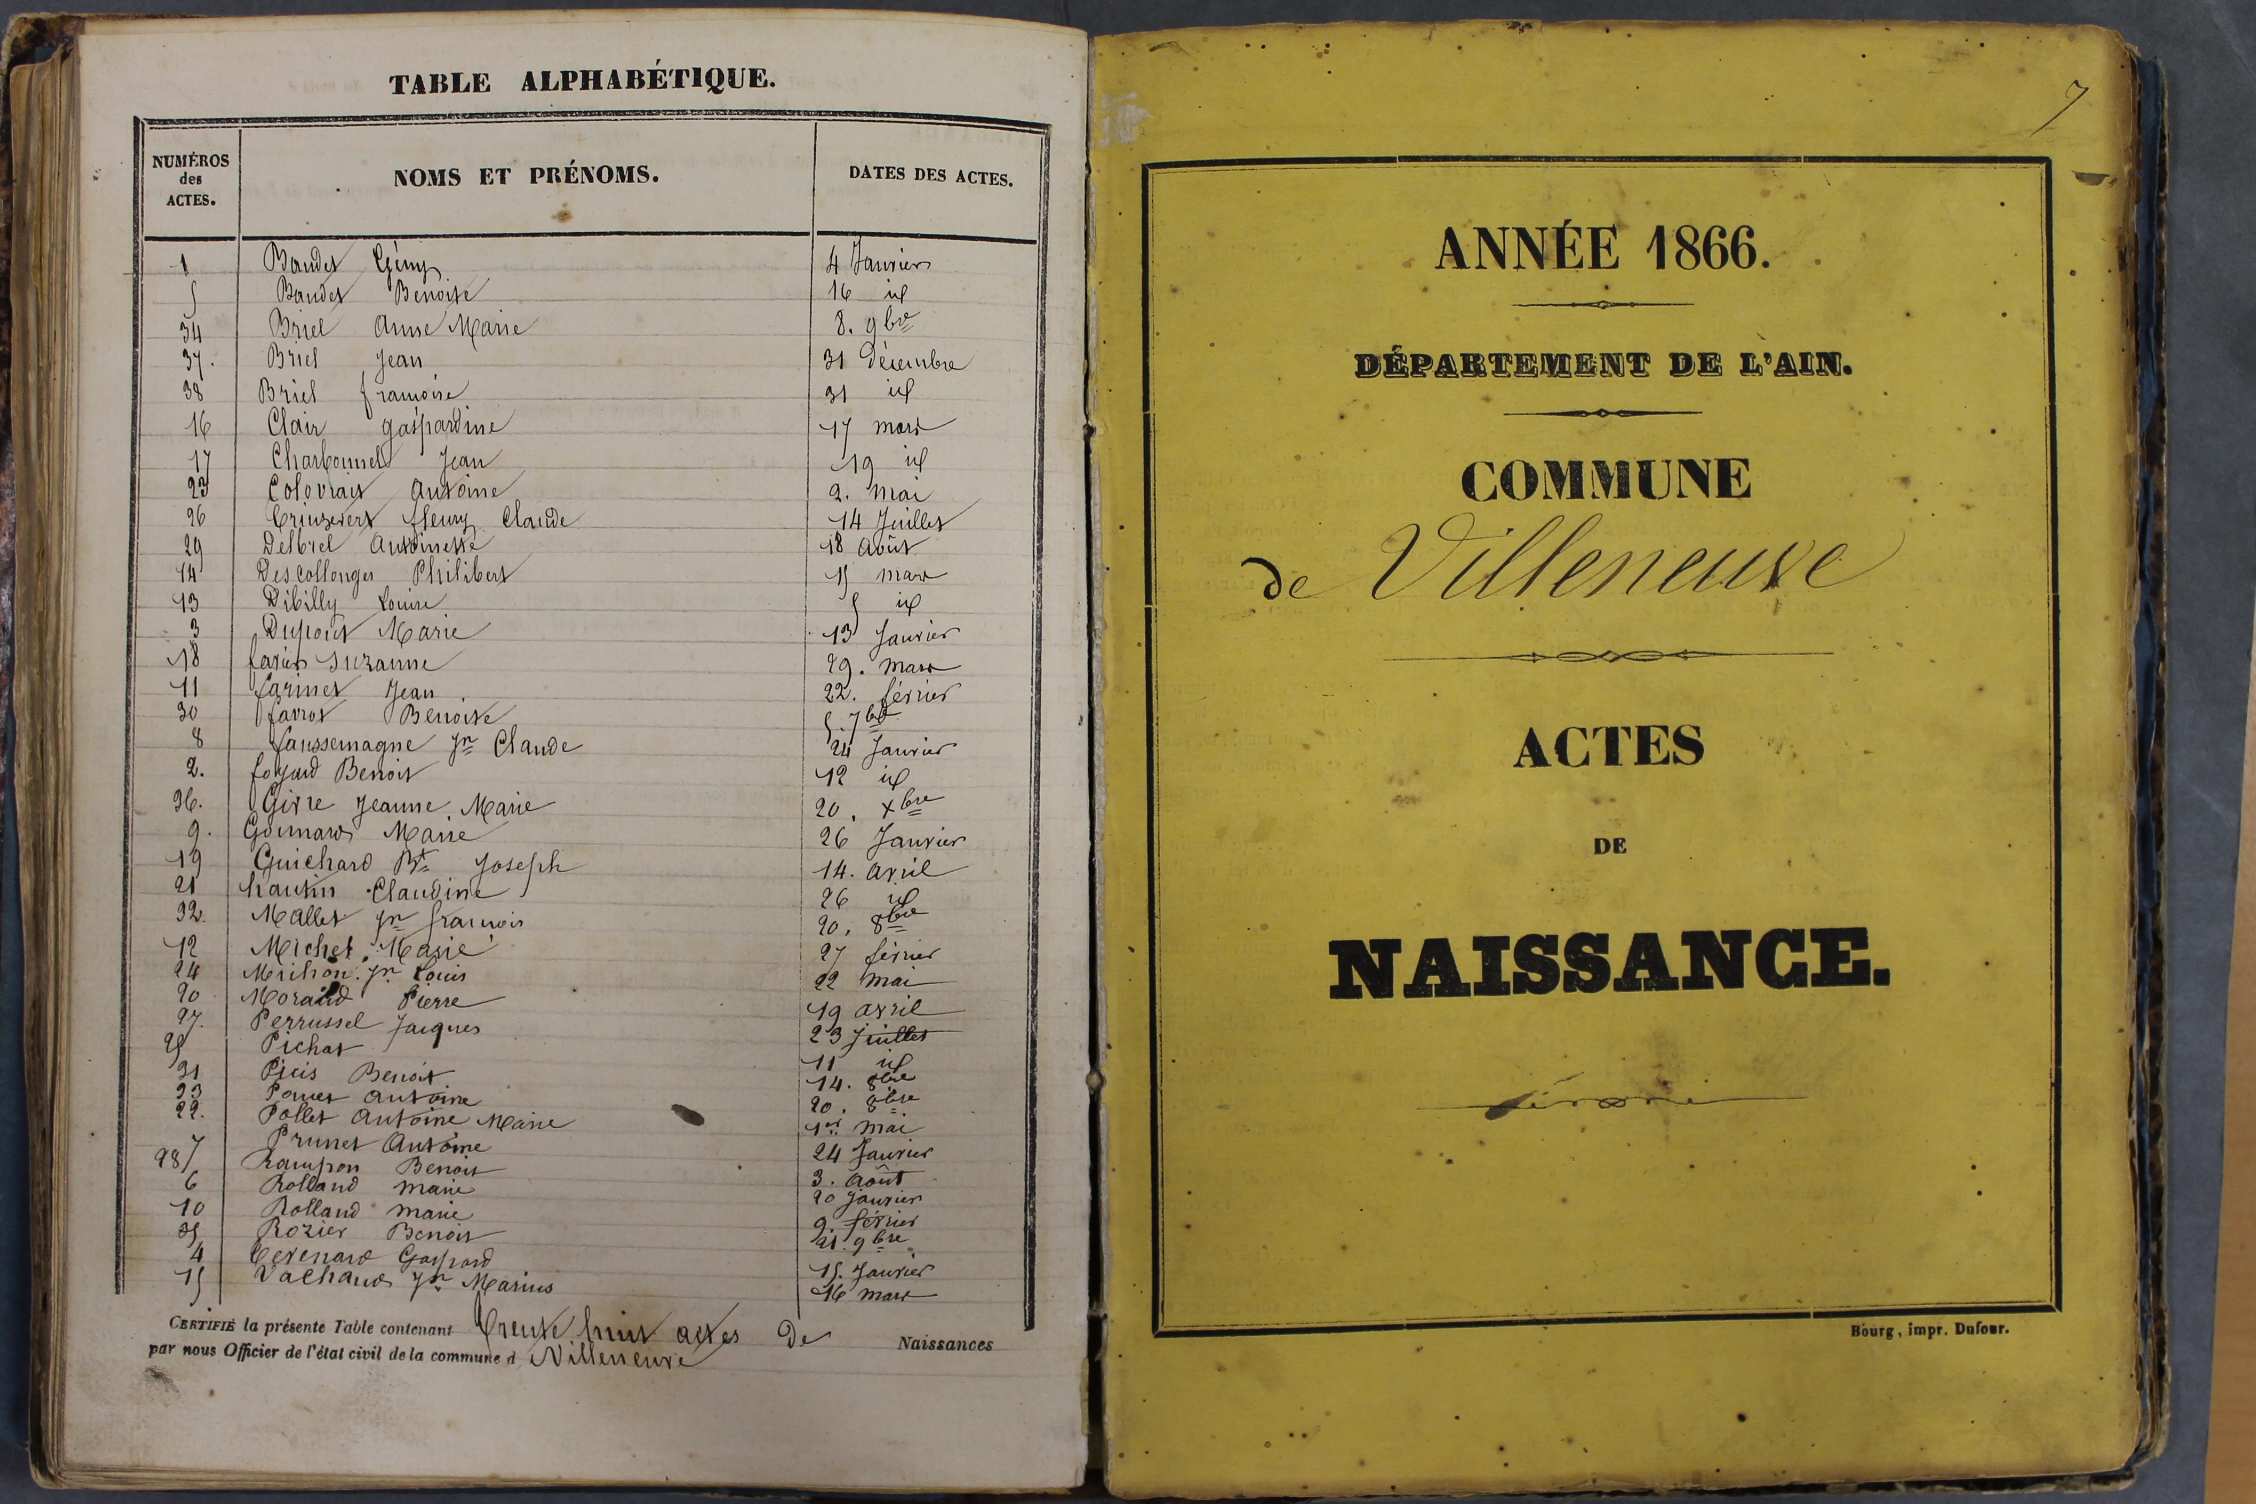 TABLE ALPHABÉTIQUE.
NUMÉROS des ACTES. NOMS ET PRÉNOMS. DATES DES ACTES.
1 Baudet Gémy 4 Janvier
5 Baudet Benoite 16 id
34 Briel Anne Marie 8. 9bre
37. Briel Jean 31 Décembre
38 Briel françoise 31 id
16 Clair gaspardine 17 mars
17 Charbonnet Jean 19 id
23 Colovrait Antoine 2. mai
26 fleury Claude 14 Juillet
29 Delorel Antoinette 18 Août
14 Descollonges Philibert 15 mars
13 Dibilly Louise 5 id
3 Dupont Marie 13 Janvier
18 favier Suzanne 29. mars
11 farinet Jean 22. février
30 favrot Benoite 5. 7bre
8 faussemagne Jn Claude 24 Janvier
2. foyard Benoit 12 id
36. Givre Jeanne Marie 20. xbre
9. Goimard Marie 26 Janvier
19 Guichard Bte Joseph 14. avril
21 hautin Claudine 26 id
32. Mallet Jn françois 20. 8bre
12 Michel Marie 27 février
24 Michon Jn Louis 22 mai
20 Morand Pierre 19 avril
27. Perrussel Jacques 23 Juillet
25 Pichat 11 id
31 Benoit 14. 8bre
33 Antoine 20. 8bre
22. Pollet Antoine Marie 1er mai
7 Prunet Antoine 24 Janvier
28 Rampon Benoit 3. Août
6 Rolland Marie 20 Janvier
10 Rolland Marie 9. février
35 Rozier Benoit 21. 9bre
4 Tevenard Gaspard 15. Janvier
15 Vachaud Jn Marius 16 mars
CERTIFIÉ la présente Table contenant Trente huit actes de Naissances
par nous Officier de l'état civil de la commune d Villeneuve
7
ANNÉE 1866.
DÉPARTEMENT DE L'AIN.
COMMUNE
de Villeneuve
ACTES
DE
NAISSANCE.
Bourg, impr. Dufour.